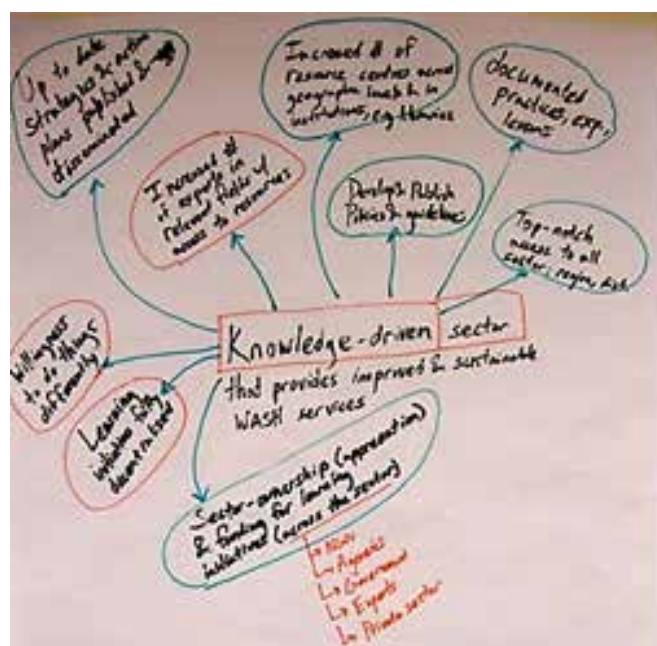 Up to date
strategies & action
plans published &
disseminated
Increased # of
resource centres
geographic levels & in
institutions, e.g. libraries
documented
practices, exp.,
lessons
Increased #
of experts in
relevant fields w/
access to resources
Develop & Publish
Policies & guidelines
Top-notch
access to all
sector, region,
Knowledge-driven sector
that provides improved & sustainable
WASH services
Willingness
to do things
differently
Learning
initiatives fully
decentralised
Sector-ownership (appreciation)
& funding for learning
initiatives (across the sector)
Agencies
Government
Experts
Private sector